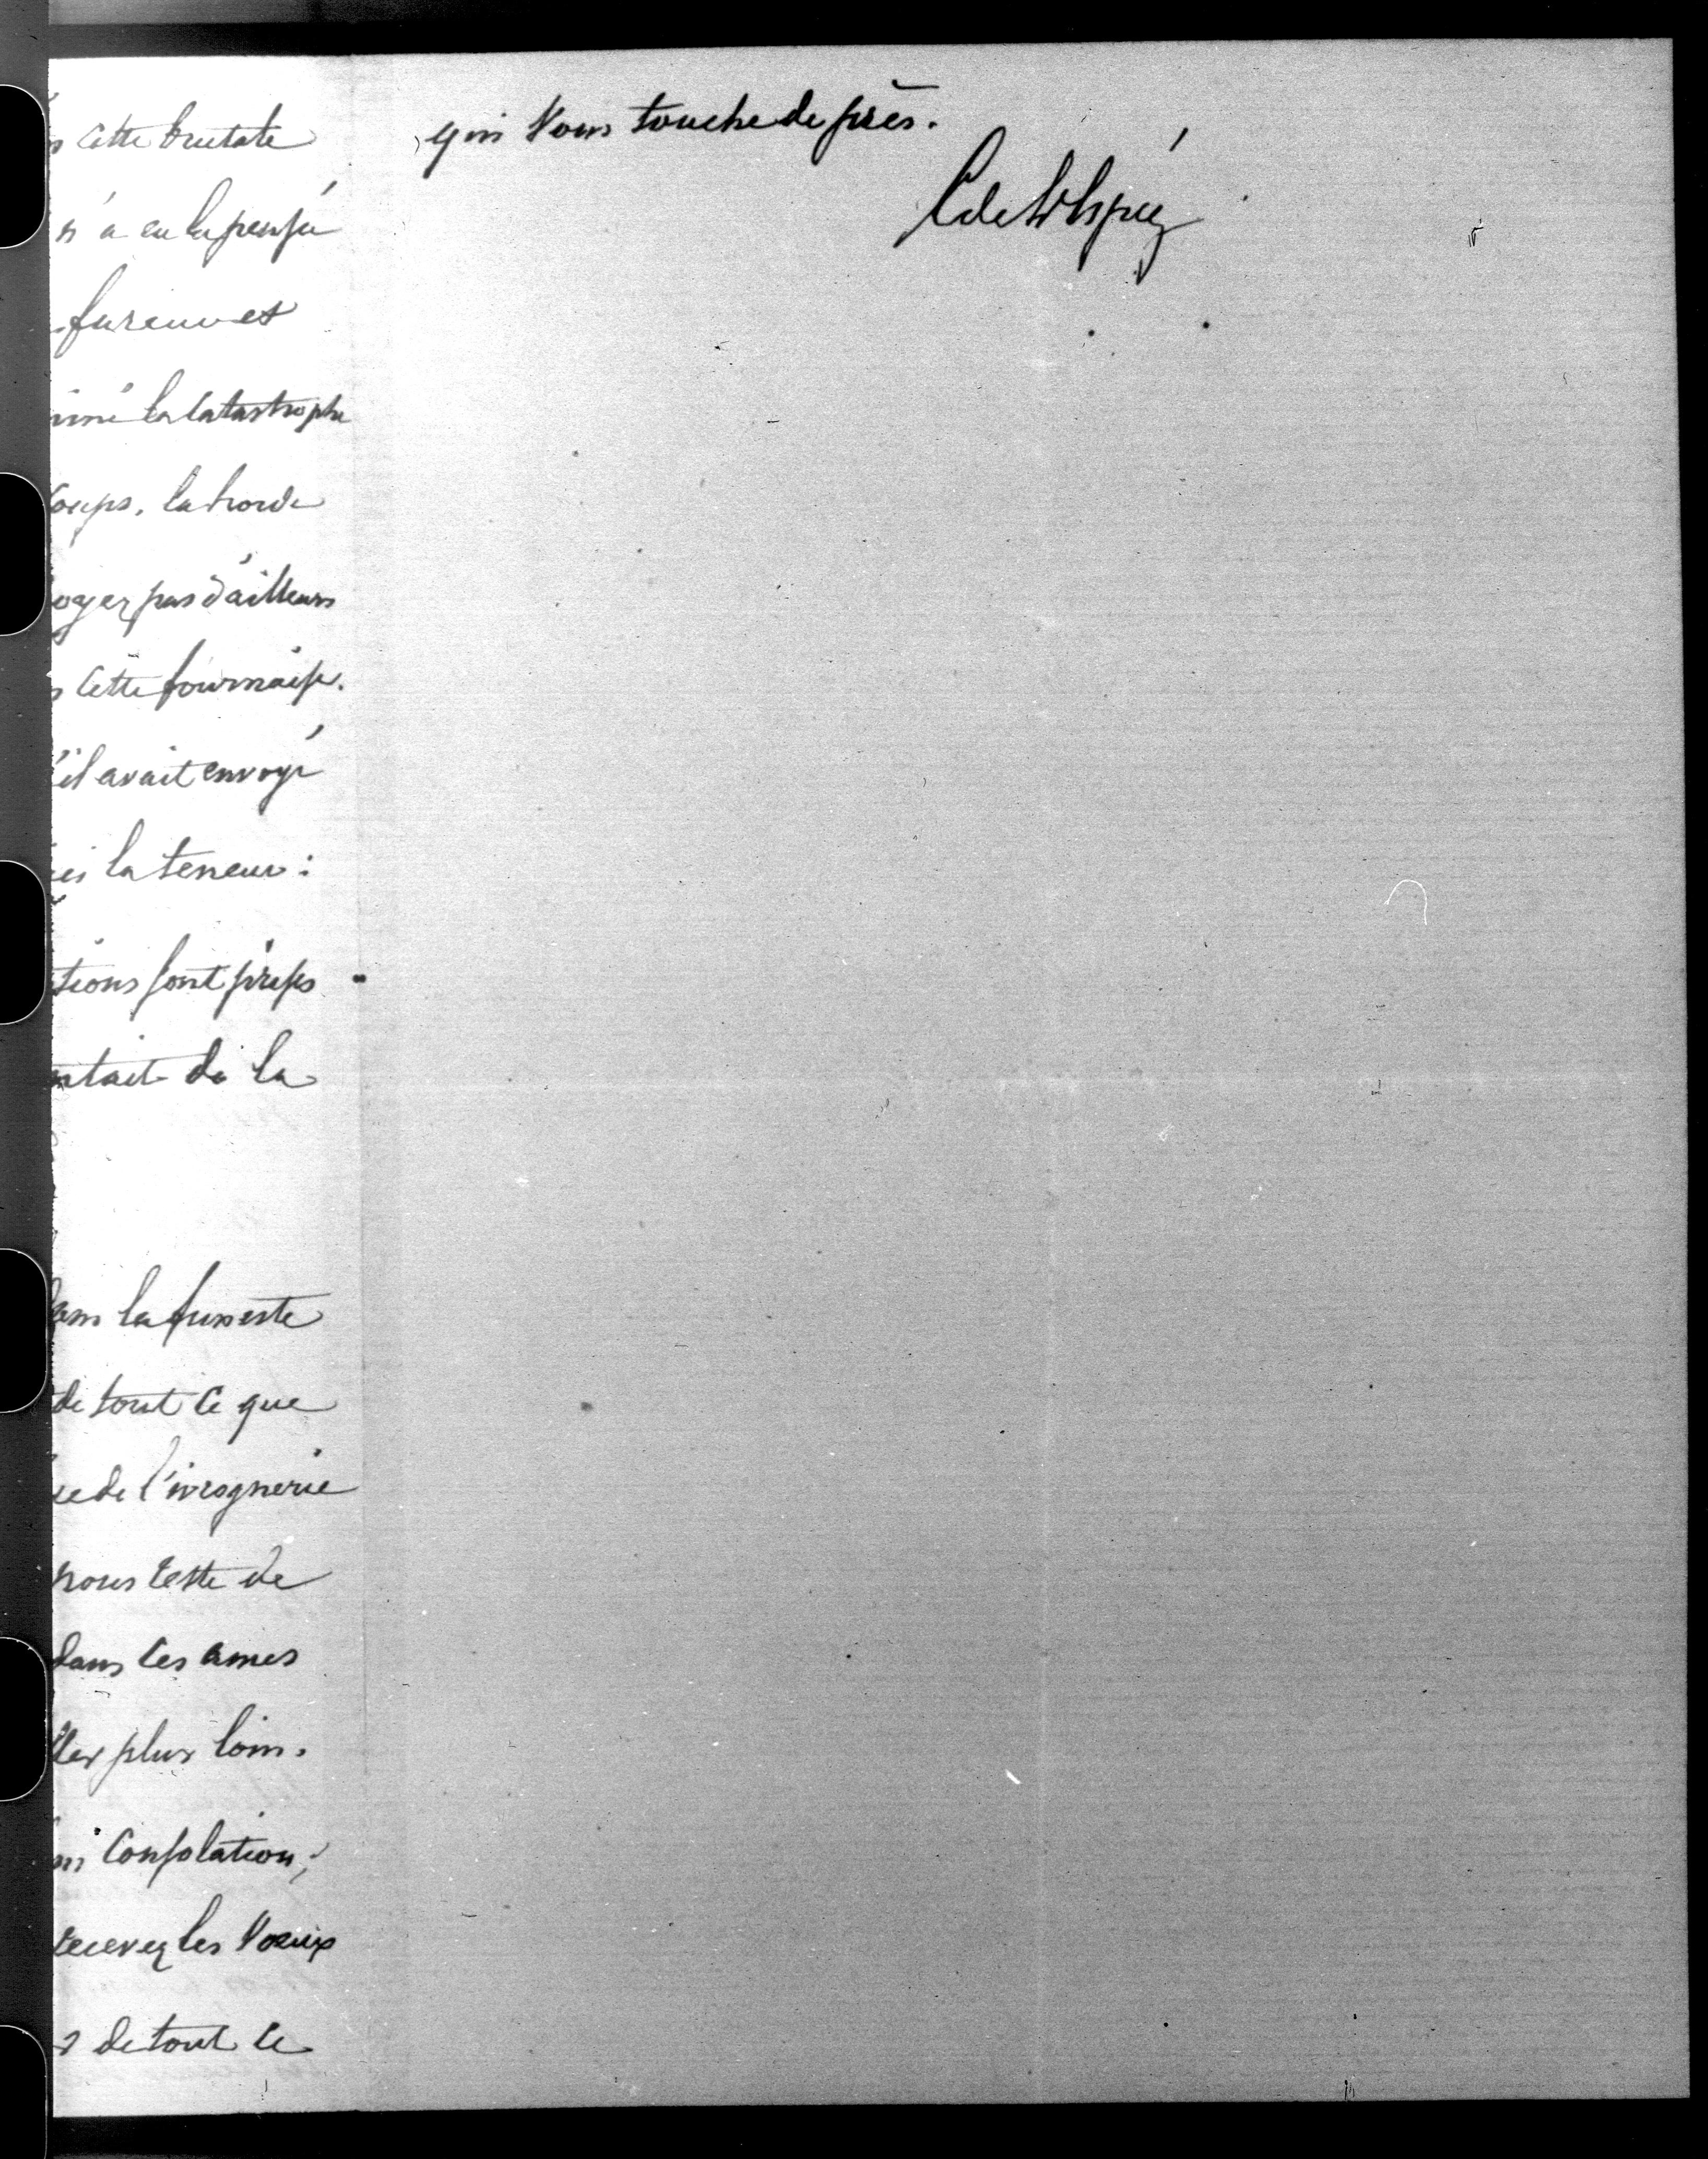 cette brutale
n'a eu la pensée
fureur et
la catastrophe
coups. la horde
oyez pas d'ailleurs
cette fournaise.
'il avait envoyé
ici la teneur :
tions sont prises
ntait de la
dans la funeste
de tout ce que
de l'ivrognerie
nous reste de
dans les âmes
ller plus loin.
ni Consolation ;
recevez les Voeux
de tout ce
qui Vous touche de près.